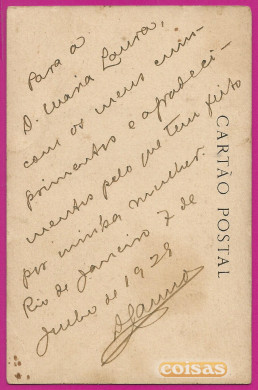 Para a
D. Maria Laura,
com os meus cum-
primentos e agradeci-
mentos pelo que tem feito
por minha mulher.
Rio de Janeiro 7 de
Julho de 1928
CARTÃO POSTAL
coisas